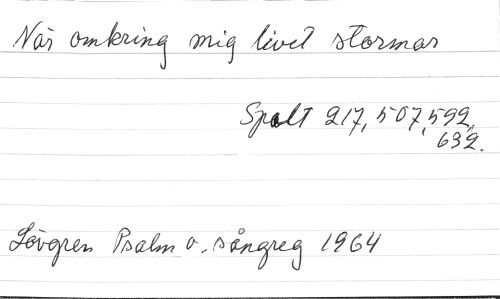 När omkring mig livet stormar
Spalt 217, 507, 592,
632.
Lövgren Psalm o. sångreg 1964